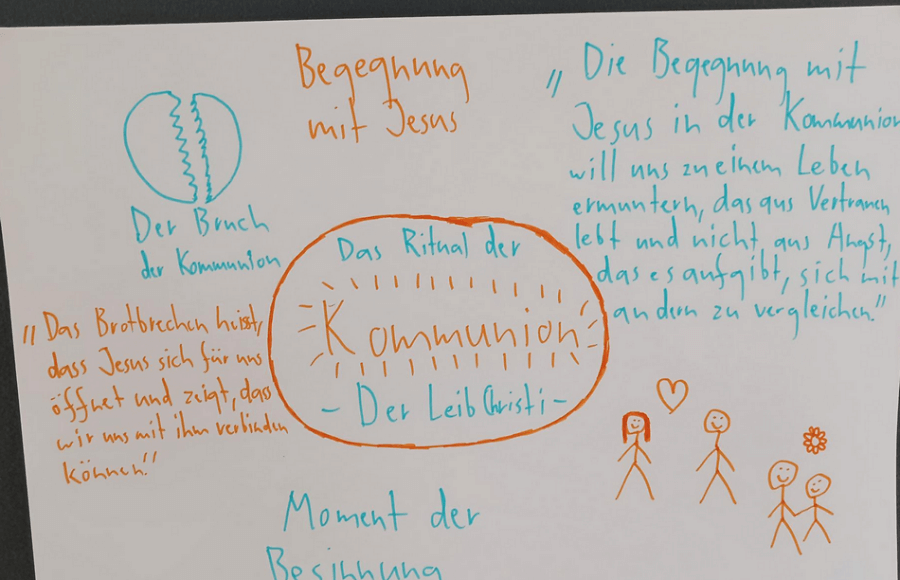 Begegnung
mit Jesus
„Die Begegnung mit
Jesus in der Kommunion
will uns zu einem Leben
ermuntern, das aus Vertrauen
lebt und nicht aus Angst,
das es aufgibt, sich mit
andern zu vergleichen."
Der Bruch
der Kommunion
Das Ritual der
Kommunion
- Der Leib Christi -
„Das Brotbrechen heisst,
dass Jesus sich für uns
öffnet und zeigt, dass
wir uns mit ihm verbinden
können."
Moment der
Besinnung